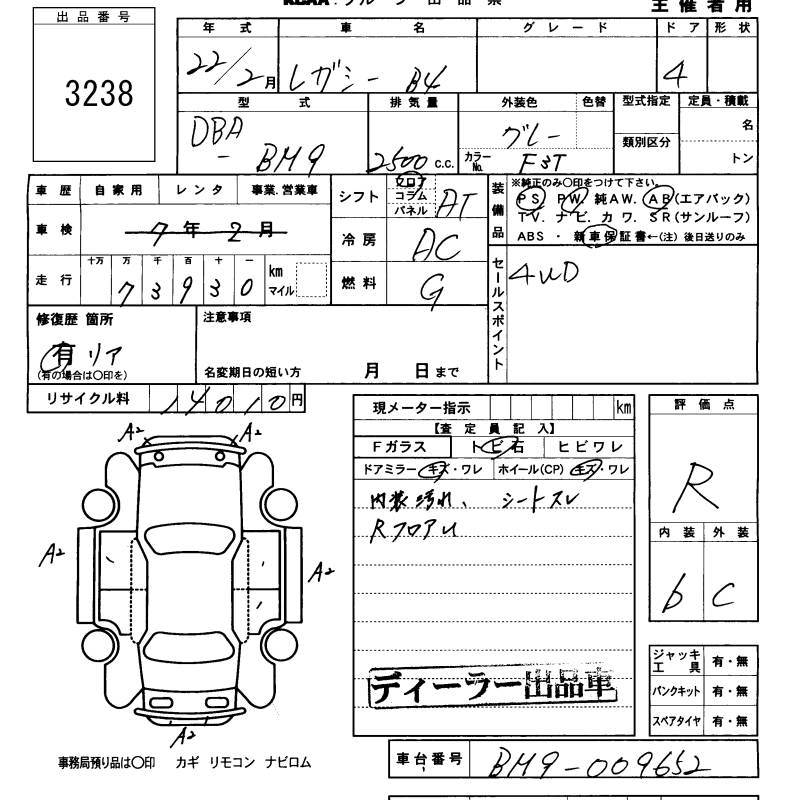 主催者用
出品番号
3238
年式 車名 グレード ドア 形状
22/2月 レガシー B4 4
型式 排気量 外装色 色替 型式指定 定員・積載
DBA
- BM9 2500 c.c. グレー 名
類別区分
カラーNo. F3T トン
車歴 自家用 レンタ 事業.営業車
シフト フロア コラム パネル AT
装備品
※純正のみ〇印をつけて下さい。
PS PW. 純AW. AB(エアバック)
TV. ナビ. カワ. SR(サンルーフ)
ABS ・ 新車保証書←(注) 後日送りのみ
車検 7年2月
冷房 AC
走行 十万 万 千 百 十 一
73930 km マイル
燃料 G
セールスポイント
4WD
修復歴 箇所
有 リア
(有の場合は〇印を)
注意事項
名変期日の短い方 月 日まで
リサイクル料 14010円
現メーター指示 km
【査定員記入】
Fガラス トビ石 ヒビワレ
ドアミラー キズ・ワレ ホイール(CP) キズ・ワレ
内装汚れ、 シートスレ
RフロアU
評価点
R
内装 外装
b C
A2 A2
A2 A2
A2
ディーラー出品車
ジャッキ工具 有・無
パンクキット 有・無
スペアタイヤ 有・無
事務局預り品は〇印 カギ リモコン ナビロム
車台番号 BM9-009652